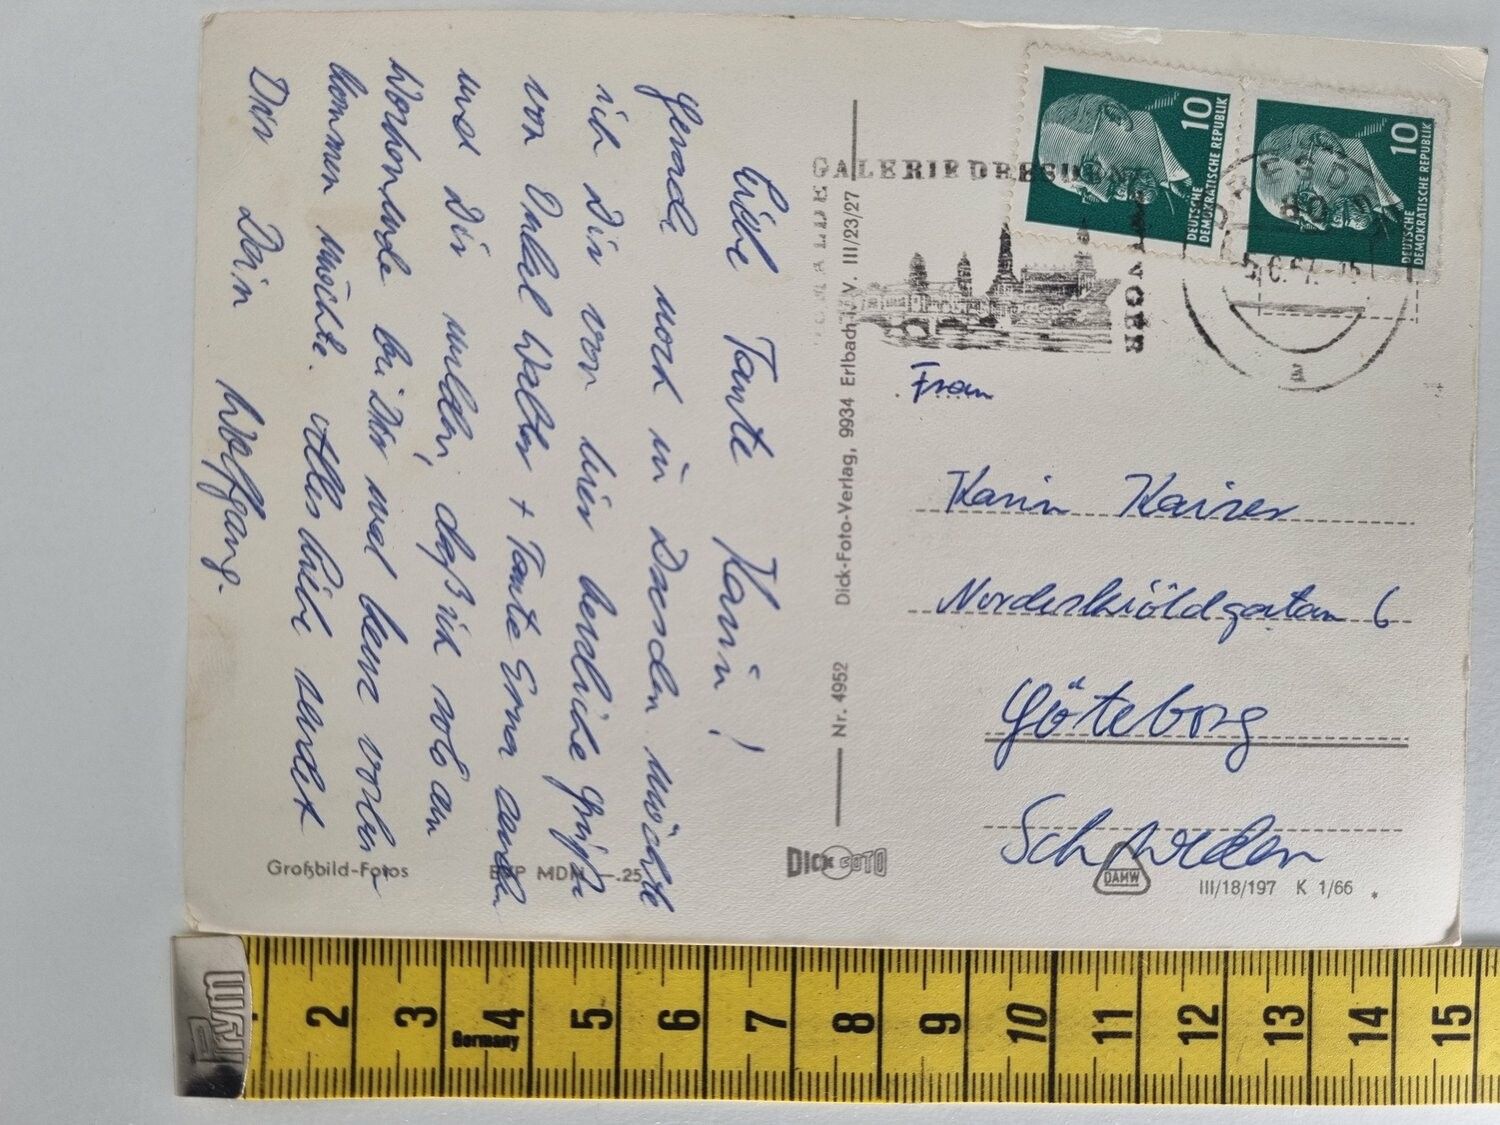 Liebe Tante Karin!
Gerade noch in Dresden möchte
ich Dir von hier herzliche Grüße
von Onkel Walter + Tante Erna senden
und Dir melden, daß ich sob am
Wochenende bei Dir mal kurz vorbei
kommen möchte. Alles Liebe sendet
Dir Dein Wolfgang.
Großbild-Fotos
EVP MDN —.25
Nr. 4952
Dick-Foto-Verlag, 9934 Erlbach i. V. III/23/27
DICK FOTO
GALERIE DRESDEN
10
DEUTSCHE
DEMOKRATISCHE REPUBLIK
10
DEUTSCHE
DEMOKRATISCHE REPUBLIK
DRESDEN
Frau
Karin Kaiser
Nordeskiöldgatan 6
Göteborg
Schweden
DAMW
III/18/197 K 1/66
Prym
2 3 4 5 6 7 8 9 10 11 12 13 14 15
Germany